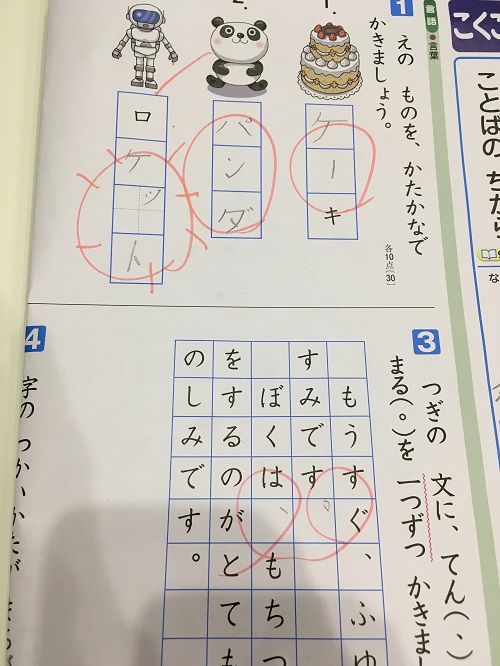 こくご
ことばの ちから
言語●言葉
1
えの ものを、かたかなで
かきましょう。
各10点〔30〕
1.
ケーキ
2.
パンダ
ロケット
3
つぎの 文に、てん(、)
まる(。)を 一つずつ かきま
もうすぐ、ふゆ
すみです。
ぼくは、もちつ
をするのがとても
のしみです。
4
字の つかいかたが